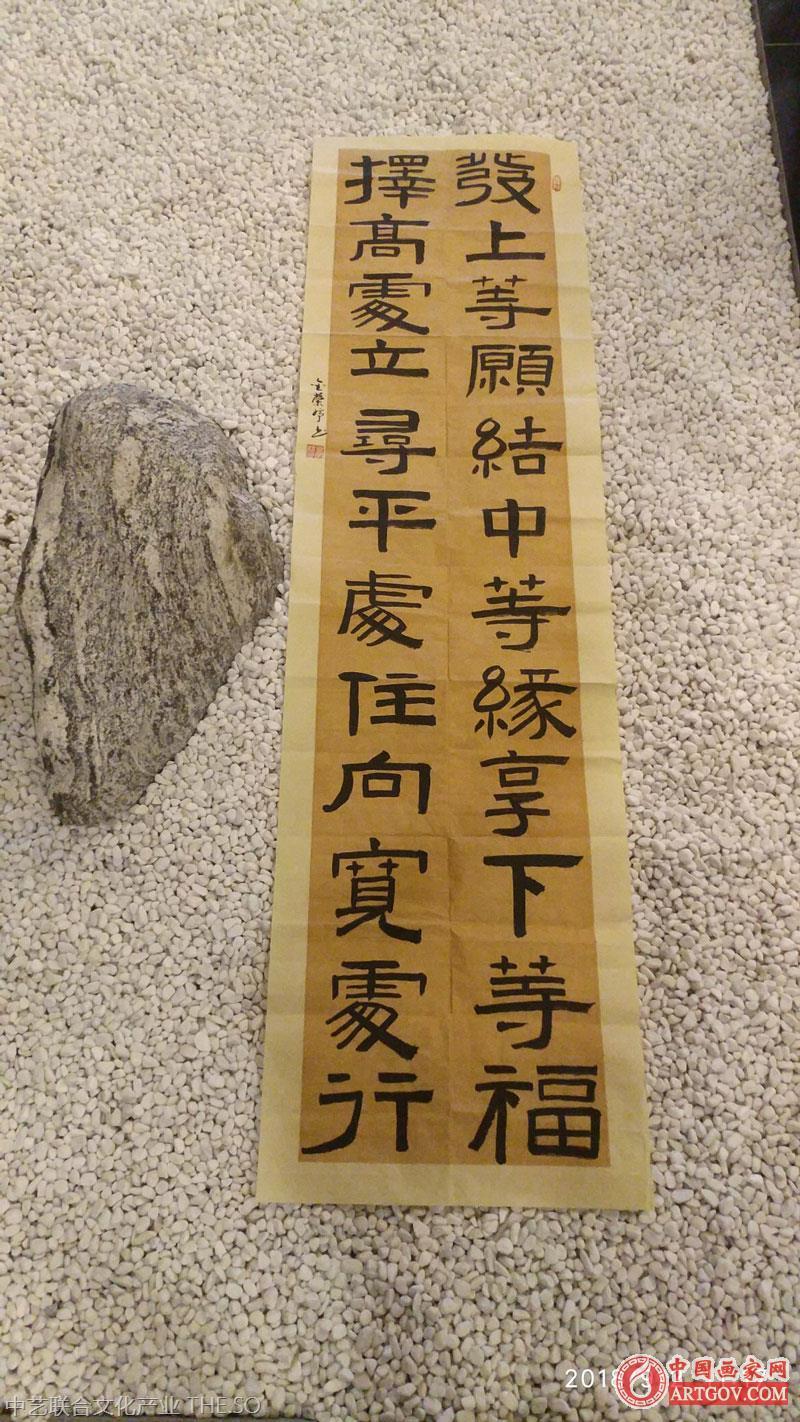 發上等願結中等緣享下等福
擇高處立尋平處住向寬處行
2018
中国画家网
ARTGOV.COM
中艺联合文化产业 THE SO